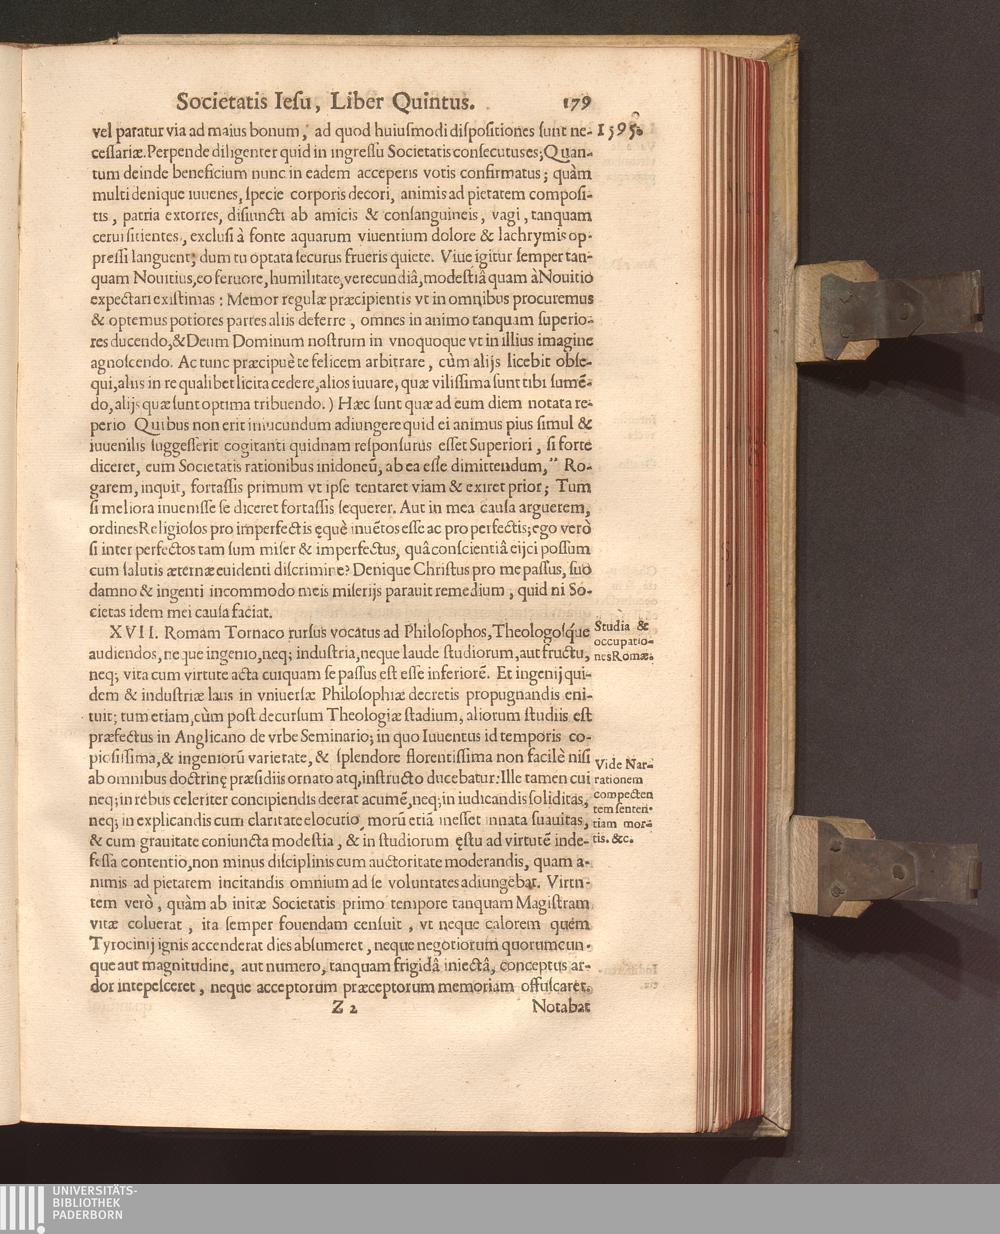 Societatis Iesu, Liber Quintus. 179
vel paratur via ad maius bonum, ad quod huiusmodi dispositiones sunt ne- 1595.
cessariæ. Perpende diligenter quid in ingressu Societatis consecutus es; Quan-
tum deinde beneficium nunc in eadem acceperis votis confirmatus; quàm
multi denique iuuenes, specie corporis decori, animis ad pietatem composi-
tis, patria extorres, disiuncti ab amicis & consanguineis, vagi, tanquam
cerui sitientes, exclusi à fonte aquarum viuentium dolore & lachrymis op-
pressi languent; dum tu optata securus frueris quiete. Viue igitur semper tan-
quam Nouitius, eo feruore, humilitate, verecundiâ, modestiâ quam à Nouitio
expectari existimas: Memor regulæ præcipientis vt in omnibus procuremus
& optemus potiores partes aliis deferre, omnes in animo tanquam superio-
res ducendo, & Deum Dominum nostrum in vnoquoque vt in illius imagine
agnoscendo. Ac tunc præcipuè te felicem arbitrare, cùm alijs licebit obse-
qui, aliis in re qualibet licita cedere, alios iuuare, quæ vilissima sunt tibi sumē-
do, alijs quæ sunt optima tribuendo.) Hæc sunt quæ ad eum diem notata re-
perio Quibus non erit iniucundum adiungere quid ei animus pius simul &
iuuenilis suggesserit cogitanti quidnam responsurus esset Superiori, si forte
diceret, eum Societatis rationibus inidoneū, ab ea esse dimittendum, " Ro-
garem, inquit, fortassis primum vt ipse tentaret viam & exiret prior; Tum
si meliora inuenisse se diceret fortassis sequerer. Aut in mea causa arguerem,
ordines Religiosos pro imperfectis ęquè inuētos esse ac pro perfectis; ego verò
si inter perfectos tam sum miser & imperfectus, quâ conscientiâ eijci possum
cum salutis æternæ euidenti discrimine? Denique Christus pro me passus, suo
damno & ingenti incommodo meis miserijs parauit remedium, quid ni So-
cietas idem mei causa faciat.
XVII. Romam Tornaco rursus vocatus ad Philosophos, Theologosq́ue
audiendos, neque ingenio, neq; industria, neque laude studiorum, aut fructu,
neq; vita cum virtute acta cuiquam se passus est esse inferiorē. Et ingenij qui-
dem & industriæ laus in vniuersæ Philosophiæ decretis propugnandis eni-
tuit; tum etiam, cùm post decursum Theologiæ stadium, aliorum studiis est
præfectus in Anglicano de vrbe Seminario; in quo Iuuentus id temporis co-
piosissima, & ingeniorū varietate, & splendore florentissima non facilè nisi
ab omnibus doctrinę præsidiis ornato atq, instructo ducebatur: Ille tamen cui
neq; in rebus celeriter concipiendis deerat acumē, neq; in iudicandis soliditas,
neq; in explicandis cum claritate elocutio, morū etiā inesset innata suauitas,
& cum grauitate coniuncta modestia, & in studiorum ęstu ad virtutē inde-
fessa contentio, non minus disciplinis cum auctoritate moderandis, quam a-
nimis ad pietatem incitandis omnium ad se voluntates adiungebat. Virtu-
tem verò, quàm ab initæ Societatis primo tempore tanquam Magistram
vitæ coluerat, ita semper fouendam censuit, vt neque calorem quem
Tyrocinij ignis accenderat dies absumeret, neque negotiorum quorumcun-
que aut magnitudine, aut numero, tanquam frigidâ iniectâ, conceptus ar-
dor intepesceret, neque acceptorum præceptorum memoriam offuscaret.
Z 2 Notabat
Studia &
occupatio-
nes Romæ.
Vide Nar-
rationem
compecten
tem senten-
tiam mor-
tis. &c.
UNIVERSITÄTS-
BIBLIOTHEK
PADERBORN